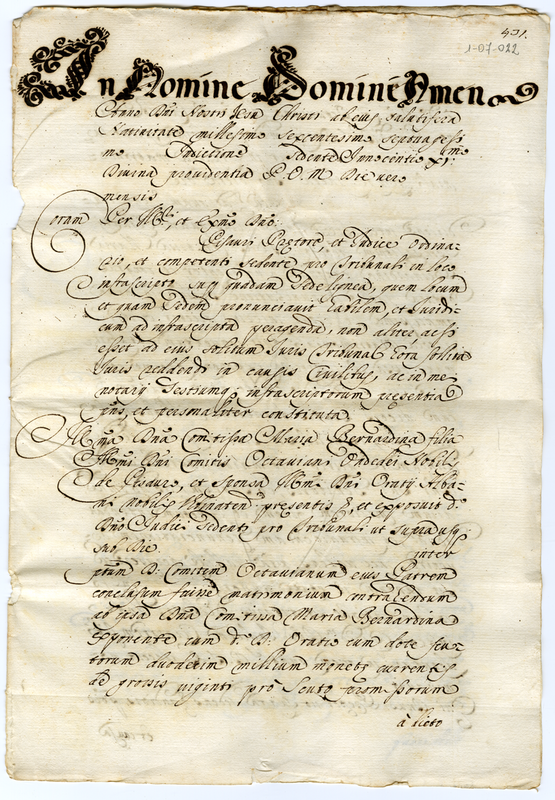 431.
1-07-022
In Nomine Domine Amen
Anno Dni Nostri Iesu Christi ab eius salutifera
Nativitate millesimo sexcentesimo septuagesi
mo Indictione sedente Innocentio XI.mo
Divina providentia P. O. M. Die vero
mensis
Coram Per Ill. et Exmo Dno.
Pisauri Pretore, et Iudice ordina-
rio, et competenti sedente pro Tribunali in loco
infrascripto sup quadam sede lignea, quem locum
et quam sedem pronunciavit habilem, et Iuridi-
cum ad infrascripta peragenda, non aliter, ac si
esset ad eius solitum Iuris Tribunal hora solita
Iuris reddendi in causis Civilibus, ac in me
notarij Testiumq; infrascriptorum presentia
pns, et personaliter constituta
Illma Dna Comitissa Maria Bernardina filia
Illmi Dni Comitis Octaviani Ondedei Nobilis
de Pesauro, et Sponsa Illmi Dni Oratij Alba-
ni nobilis presentis et exposuit d.
Dno Iudici sedenti pro Tribunali ut supra
sub Die inter
ptum D. Comitem Octavianum eius Patrem
conclusum fuisse matrimonium contrahendum
ab ipsa Dna Comitissa Maria Bernardina
exponente cum d. D. Oratio cum dote scu-
torum duodecim millium monete currentis
de grossis viginti pro scuto promissorum
à dicto